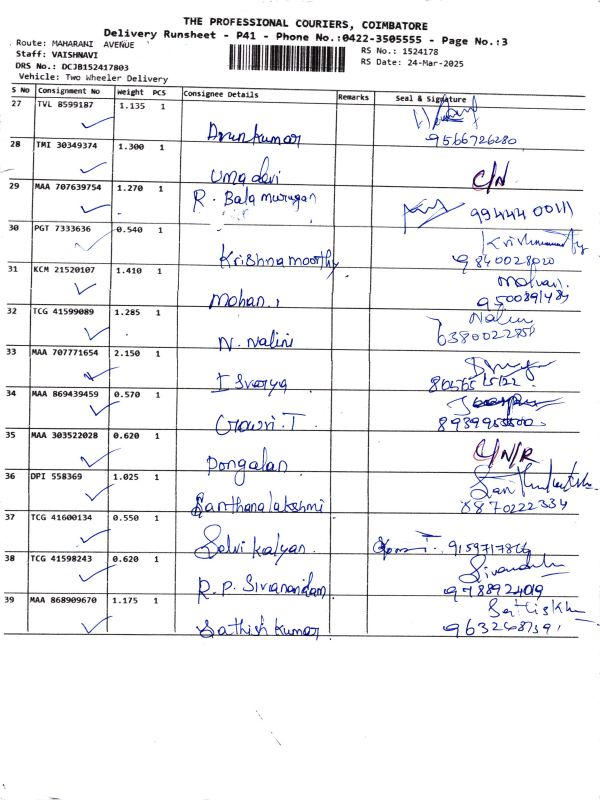 THE PROFESSIONAL COURIERS, COIMBATORE
Delivery Runsheet - P41 - Phone No.:0422-3505555 - Page No.:3
Route: MAHARANI AVENUE
Staff: VAISHNAVI
DRS No.: DCJB152417803
Vehicle: Two Wheeler Delivery
RS No.: 1524178
RS Date: 24-Mar-2025
S No Consignment No Weight PCS Consignee Details Remarks Seal & Signature
27 TVL 8599187 1.135 1
Arunkumar 9566726280
28 TMI 30349374 1.300 1
Uma devi C/N
29 MAA 707639754 1.270 1
R. Bala murugan 99444 00111
30 PGT 7333636 0.540 1
Krishna moorthy 9840028020
31 KCM 21520107 1.410 1 Mohan.
Mohan.
32 TCG 41599089 1.285 1 Nalini
N. Nalini
33 MAA 707771654 2.150 1
Iswarya
34 MAA 869439459 0.570 1
Gowri.T
35 MAA 303522028 0.620 1
Pongalan C/N/R
36 DPI 558369 1.025 1
Santhanalakshmi 8870222334
37 TCG 41600134 0.550 1
Selvi kalyan
38 TCG 41598243 0.620 1
R.P. Sivanandam 9788924019
39 MAA 868909670 1.175 1
Sathish kumar